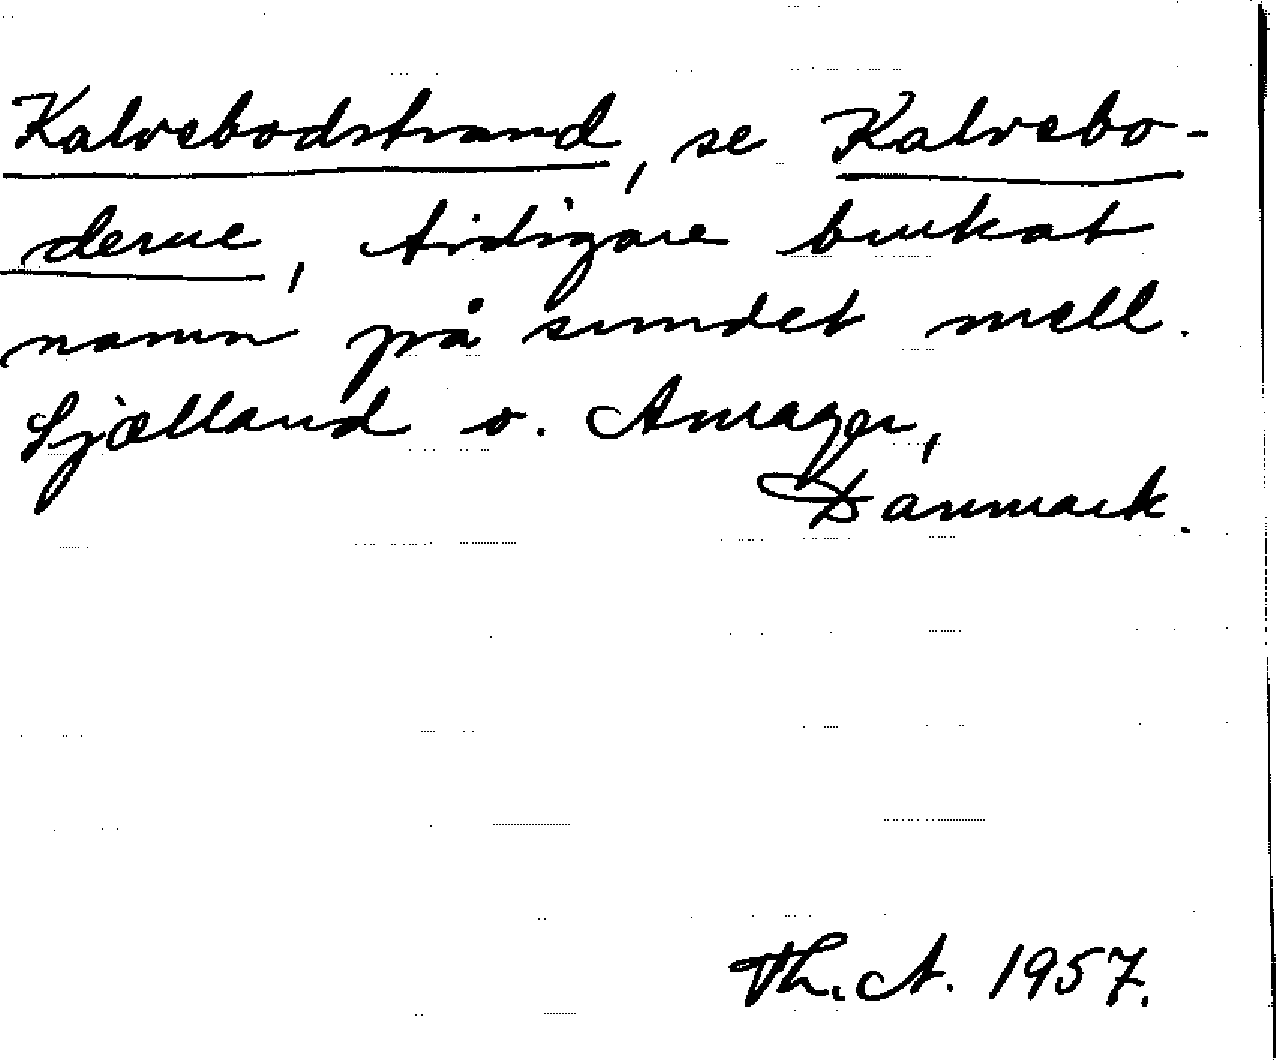 Kalvebodstrand, se Kalvebo-
derne, tidigare brukat
namn på sundet mell.
Sjælland o. Amager,
Danmark.
Th. A. 1957.